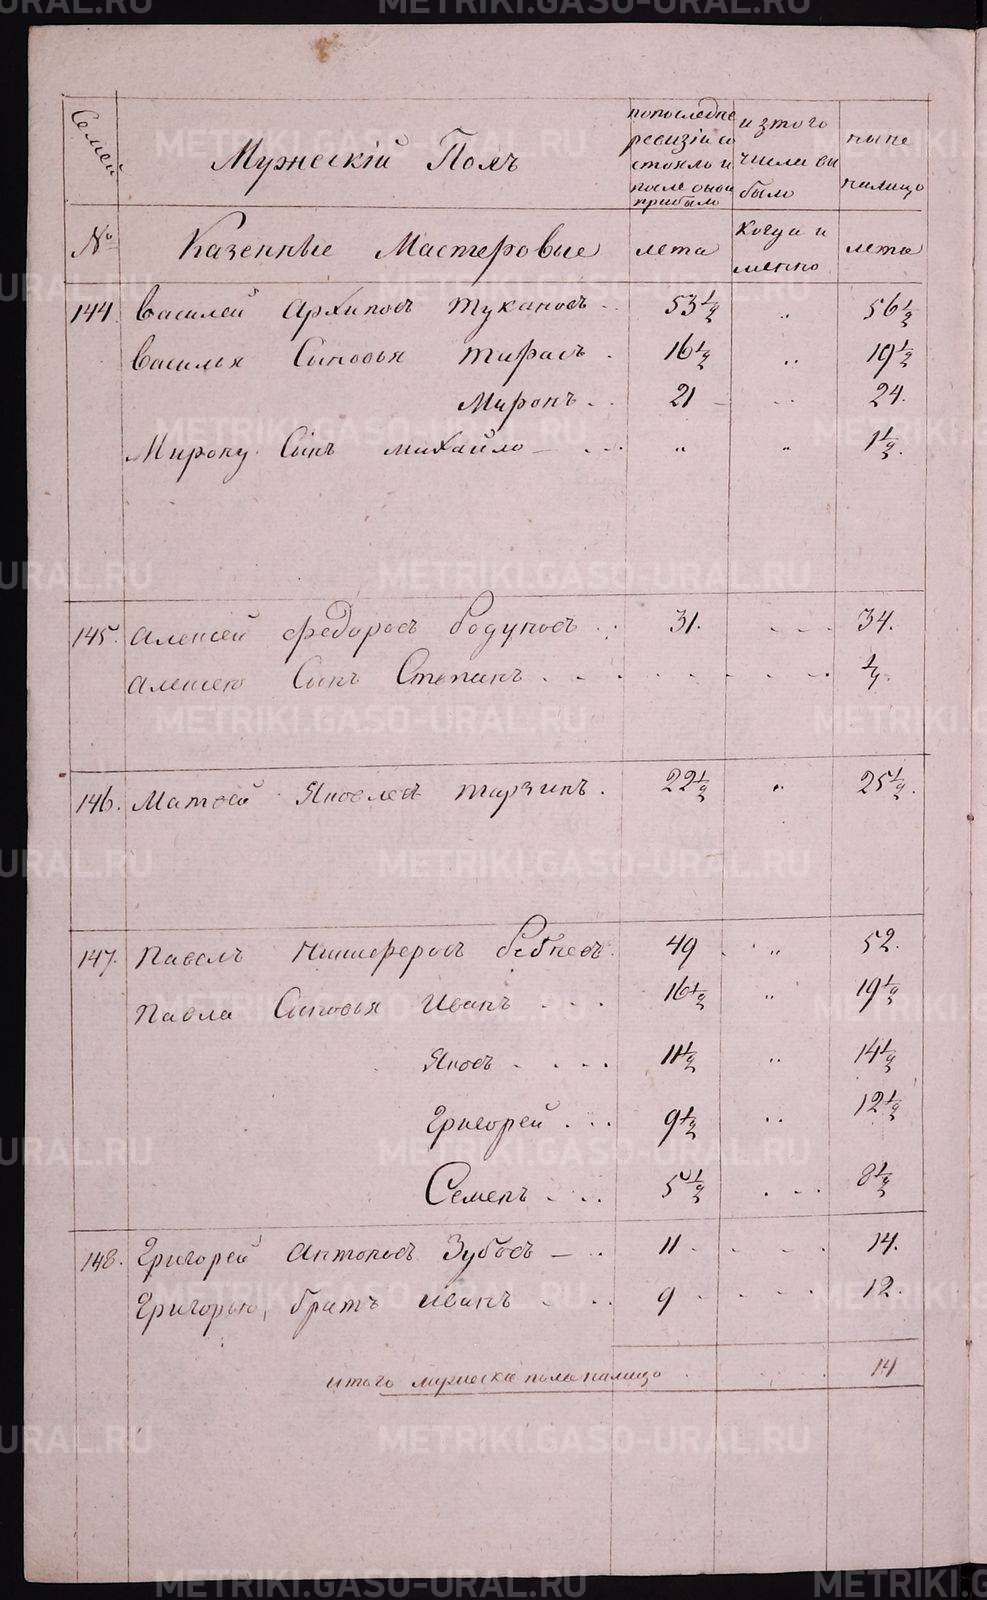 METRIKI.GASO-URAL.RU
Семей
Мужескій Полъ
попоследне ревизіи состояло и после оной прибыло
изтого числа выбыло
ныне налицо
№
Казенные Мастеровые
лета
Когда именно
лета
144. Василей Архиповъ Тукановъ 53 1/2 „ 56 1/2
Василья Сыновья Тарасъ 16 1/2 „ 19 1/2
Миронъ 21 24.
Мирону Сынъ Михайло „ „ 1 1/2.
145. Алексей Федоровъ Бодуновъ 31. 34.
Алексею Сынъ Степанъ 1/4.
146. Матвей Яковлевъ Тарзинъ. 22 1/2 „ 25 1/2.
147. Павелъ Никиферовъ 49 „ 52.
Павла Сыновья Иванъ 16 1/2 „ 19 1/2
Яковъ 11 1/2 „ 14 1/2
Григорей 9 1/2 „ 12 1/2
Семенъ 5 1/2 8 1/2
148. Григорей Антоновъ Зубовъ 11 14.
Григорью, братъ Иванъ 9 12.
итого мужеска пола налицо 14